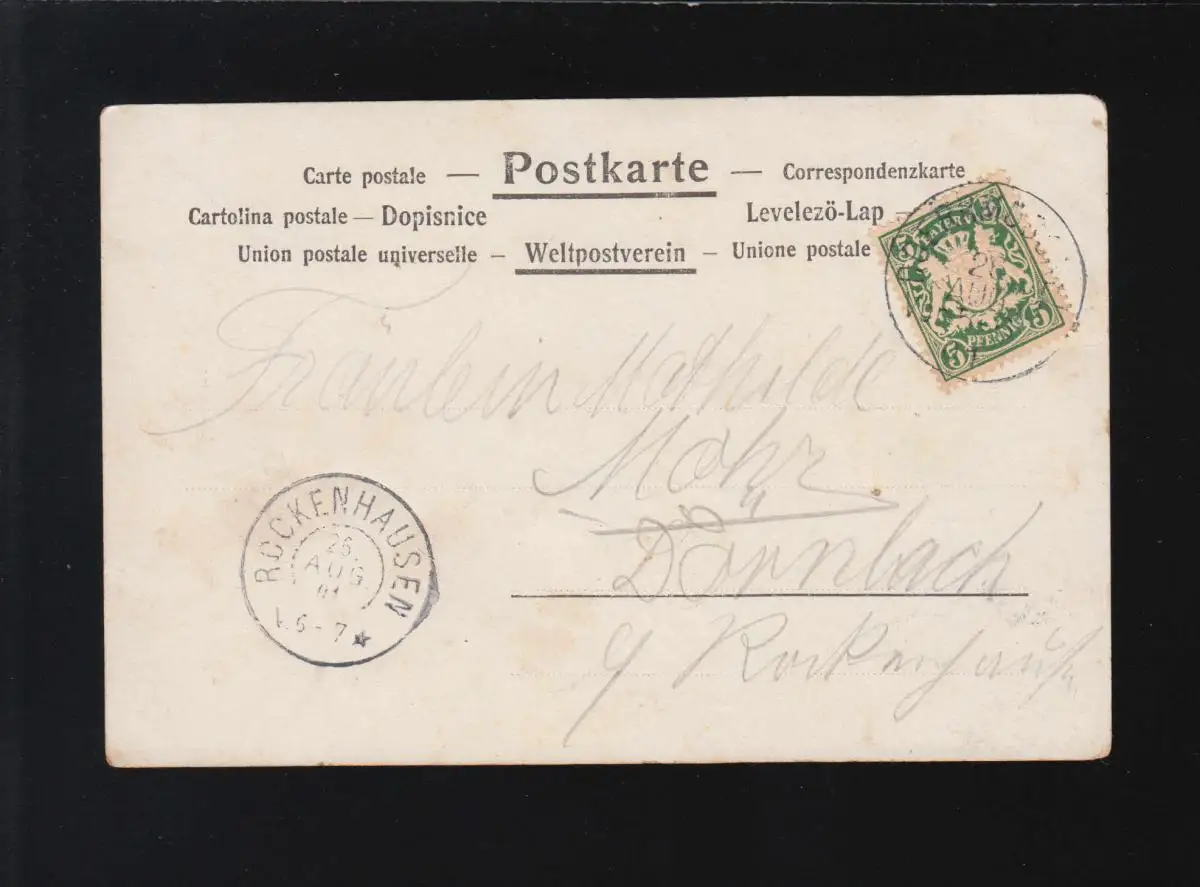 Carte postale — Postkarte — Correspondenzkarte
Cartolina postale — Dopisnice Levelezö-Lap –
Union postale universelle – Weltpostverein – Unione postale
BAYERN
5 PFENNIG 5
26
AUG
Fräulein Mathilde
Mohr
Dörnbach
ROCKENHAUSEN
26.
AUG
01
6-7
Rockenhausen